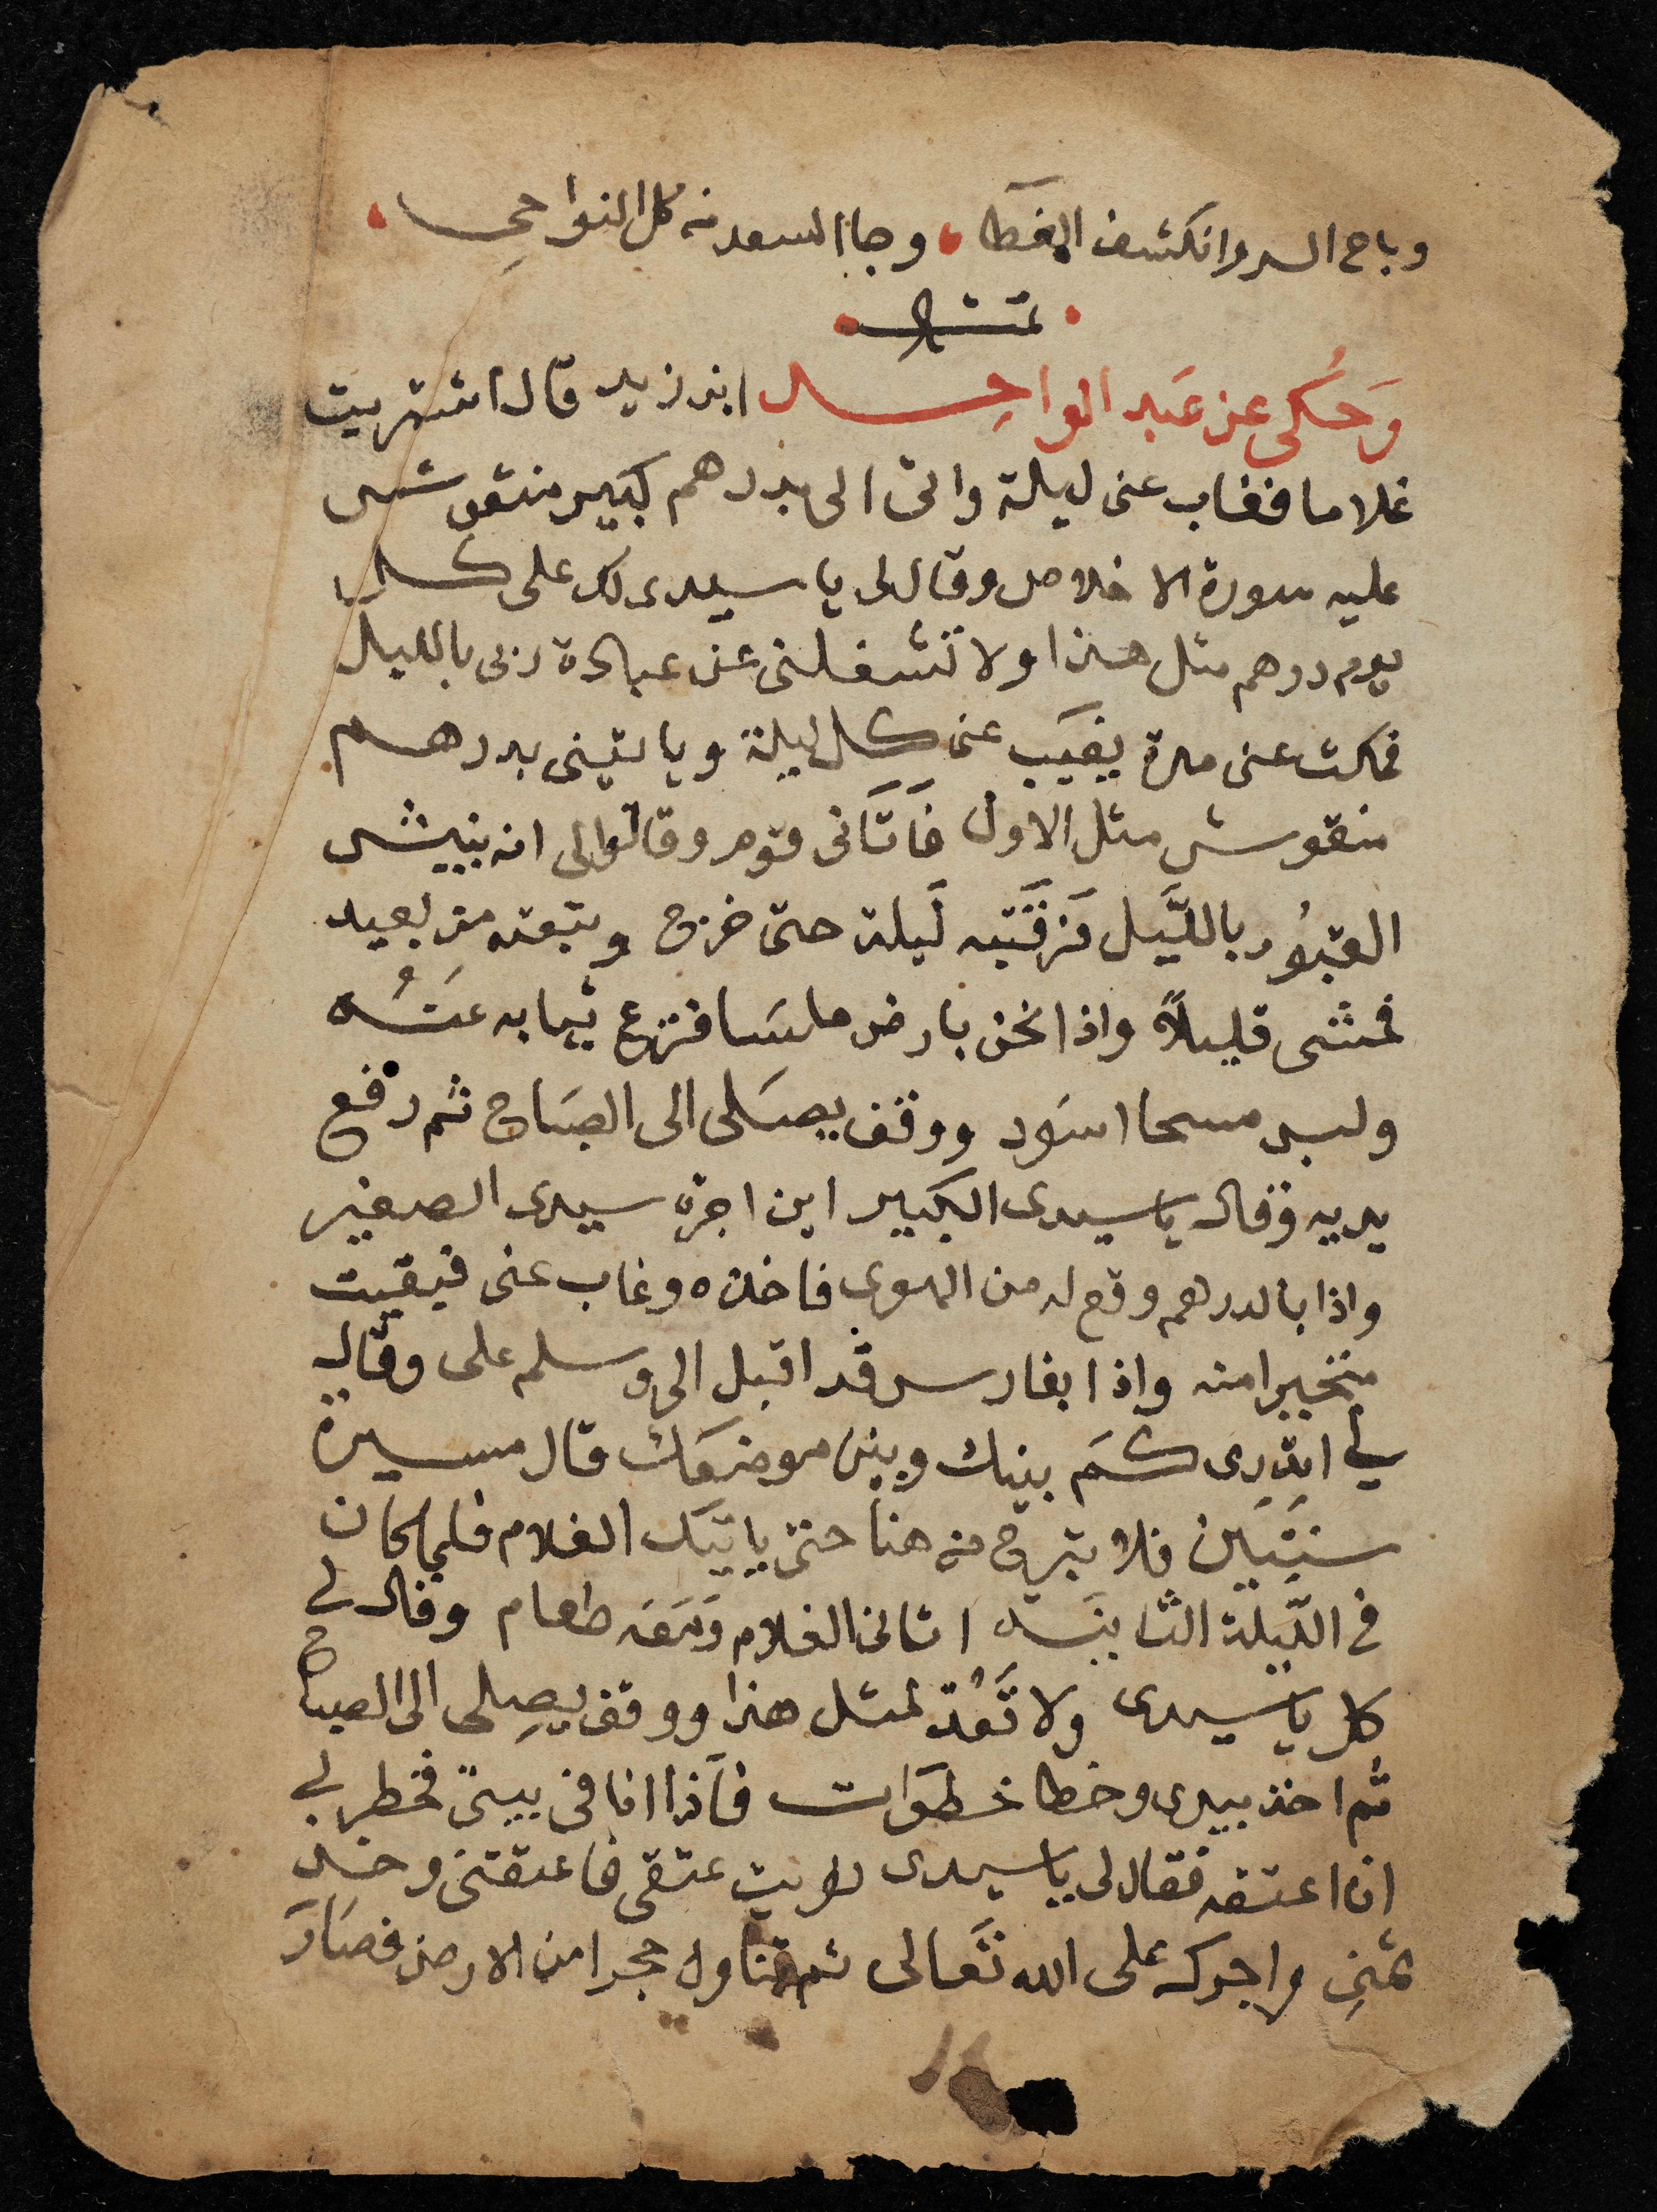 وباح السر وانكشف الغطا • وجا السعد من كل النواحي •
• تمت •
وَحُكى عن عَبد الواحِد ابن زيد قال اشتريت
غلاما فغاب عنى ليلة واتى الى بدرهم كبير منقوش
عليه سورة الاخلاص وقال لى يا سيدى لك على كل
يوم درهم مثل هذا ولا تشغلنى عن عبادة ربى بالليل
فمكث عنى مدة يغيَب عنى كل ليلة وياتينى بدرهم
منقوش مثل الاول فَاتَانى قوم وقالوا لى انه ينبش
القبوُر بالليَل فَرقَبته لَيلة حتى خرج وتبعته من بعيد
فمشى قليلاً واذا نحن بارض ملسَا فنزع ثيابه عَنُه
ولبس مسحا اسَود ووقف يصَلى الى الصَباح ثم رفع
يديه وقال يا سيدى الكبير اين اجرة سيدى الصغير
واذا بالدرهم وقع له من الهوى فاخذه وغاب عنى فبقيت
متحيرا منه واذا بفارس قد اقبل الى وسلم على وقال
لي اتدِرى كَم بينك وبين موضعَك قال مسيرة
سنتَين فلا تبرح من هنا حتى ياتيَك الغلام فلما كان
فى الليَلة الثانيَه اتانى الغلام وَمَعَه طعام وقال لي
كل يا سيدى ولا تَعُد لمثل هذا ووقف يصِلى الى الصباح
ثُم اخذ بيدى وخطا خطوَات فاَذا انا فى بيتى فخطر لي
ان اعتقه فقال لى يا سيدى نويت عتقى فاعتقنى وخذ
ثمنِى واجرك على الله تعَالى ثم تناول حجرا من الارض فصَارَ